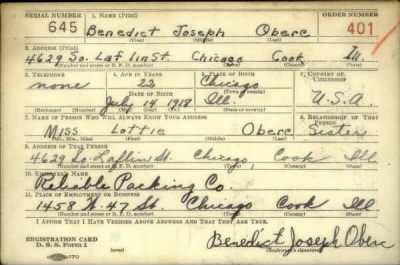 SERIAL NUMBER 1. NAME (Print) ORDER NUMBER
645 Benedict Joseph Oberc 401
(First) (Middle) (Last)
2. ADDRESS (Print)
4629 So. Laflin St. Chicago Cook Ill.
(Number and street or R. F. D. number) (Town) (County) (State)
3. TELEPHONE 4. AGE IN YEARS 5. PLACE OF BIRTH 6. COUNTRY OF CITIZENSHIP
none 22 Chicago
DATE OF BIRTH (Town or county)
July 14 1918 Ill. U.S.A.
(Exchange) (Number) (Mo.) (Day) (Yr.) (State or country)
7. NAME OF PERSON WHO WILL ALWAYS KNOW YOUR ADDRESS 8. RELATIONSHIP OF THAT PERSON
Miss Lottie Oberc Sister
(Mr., Mrs., Miss) (First) (Middle) (Last)
9. ADDRESS OF THAT PERSON
4629 So Laflin St. Chicago Cook Ill
(Number and street or R. F. D. number) (Town) (County) (State)
10. EMPLOYER'S NAME
Reliable Packing Co.
11. PLACE OF EMPLOYMENT OR BUSINESS
1458 W. 47 St. Chicago Cook Ill
(Number and street or R. F. D. number) (Town) (County) (State)
I AFFIRM THAT I HAVE VERIFIED ABOVE ANSWERS AND THAT THEY ARE TRUE.
REGISTRATION CARD
D. S. S. Form 1 (over) Benedict Joseph Oberc
(Registrant's signature)